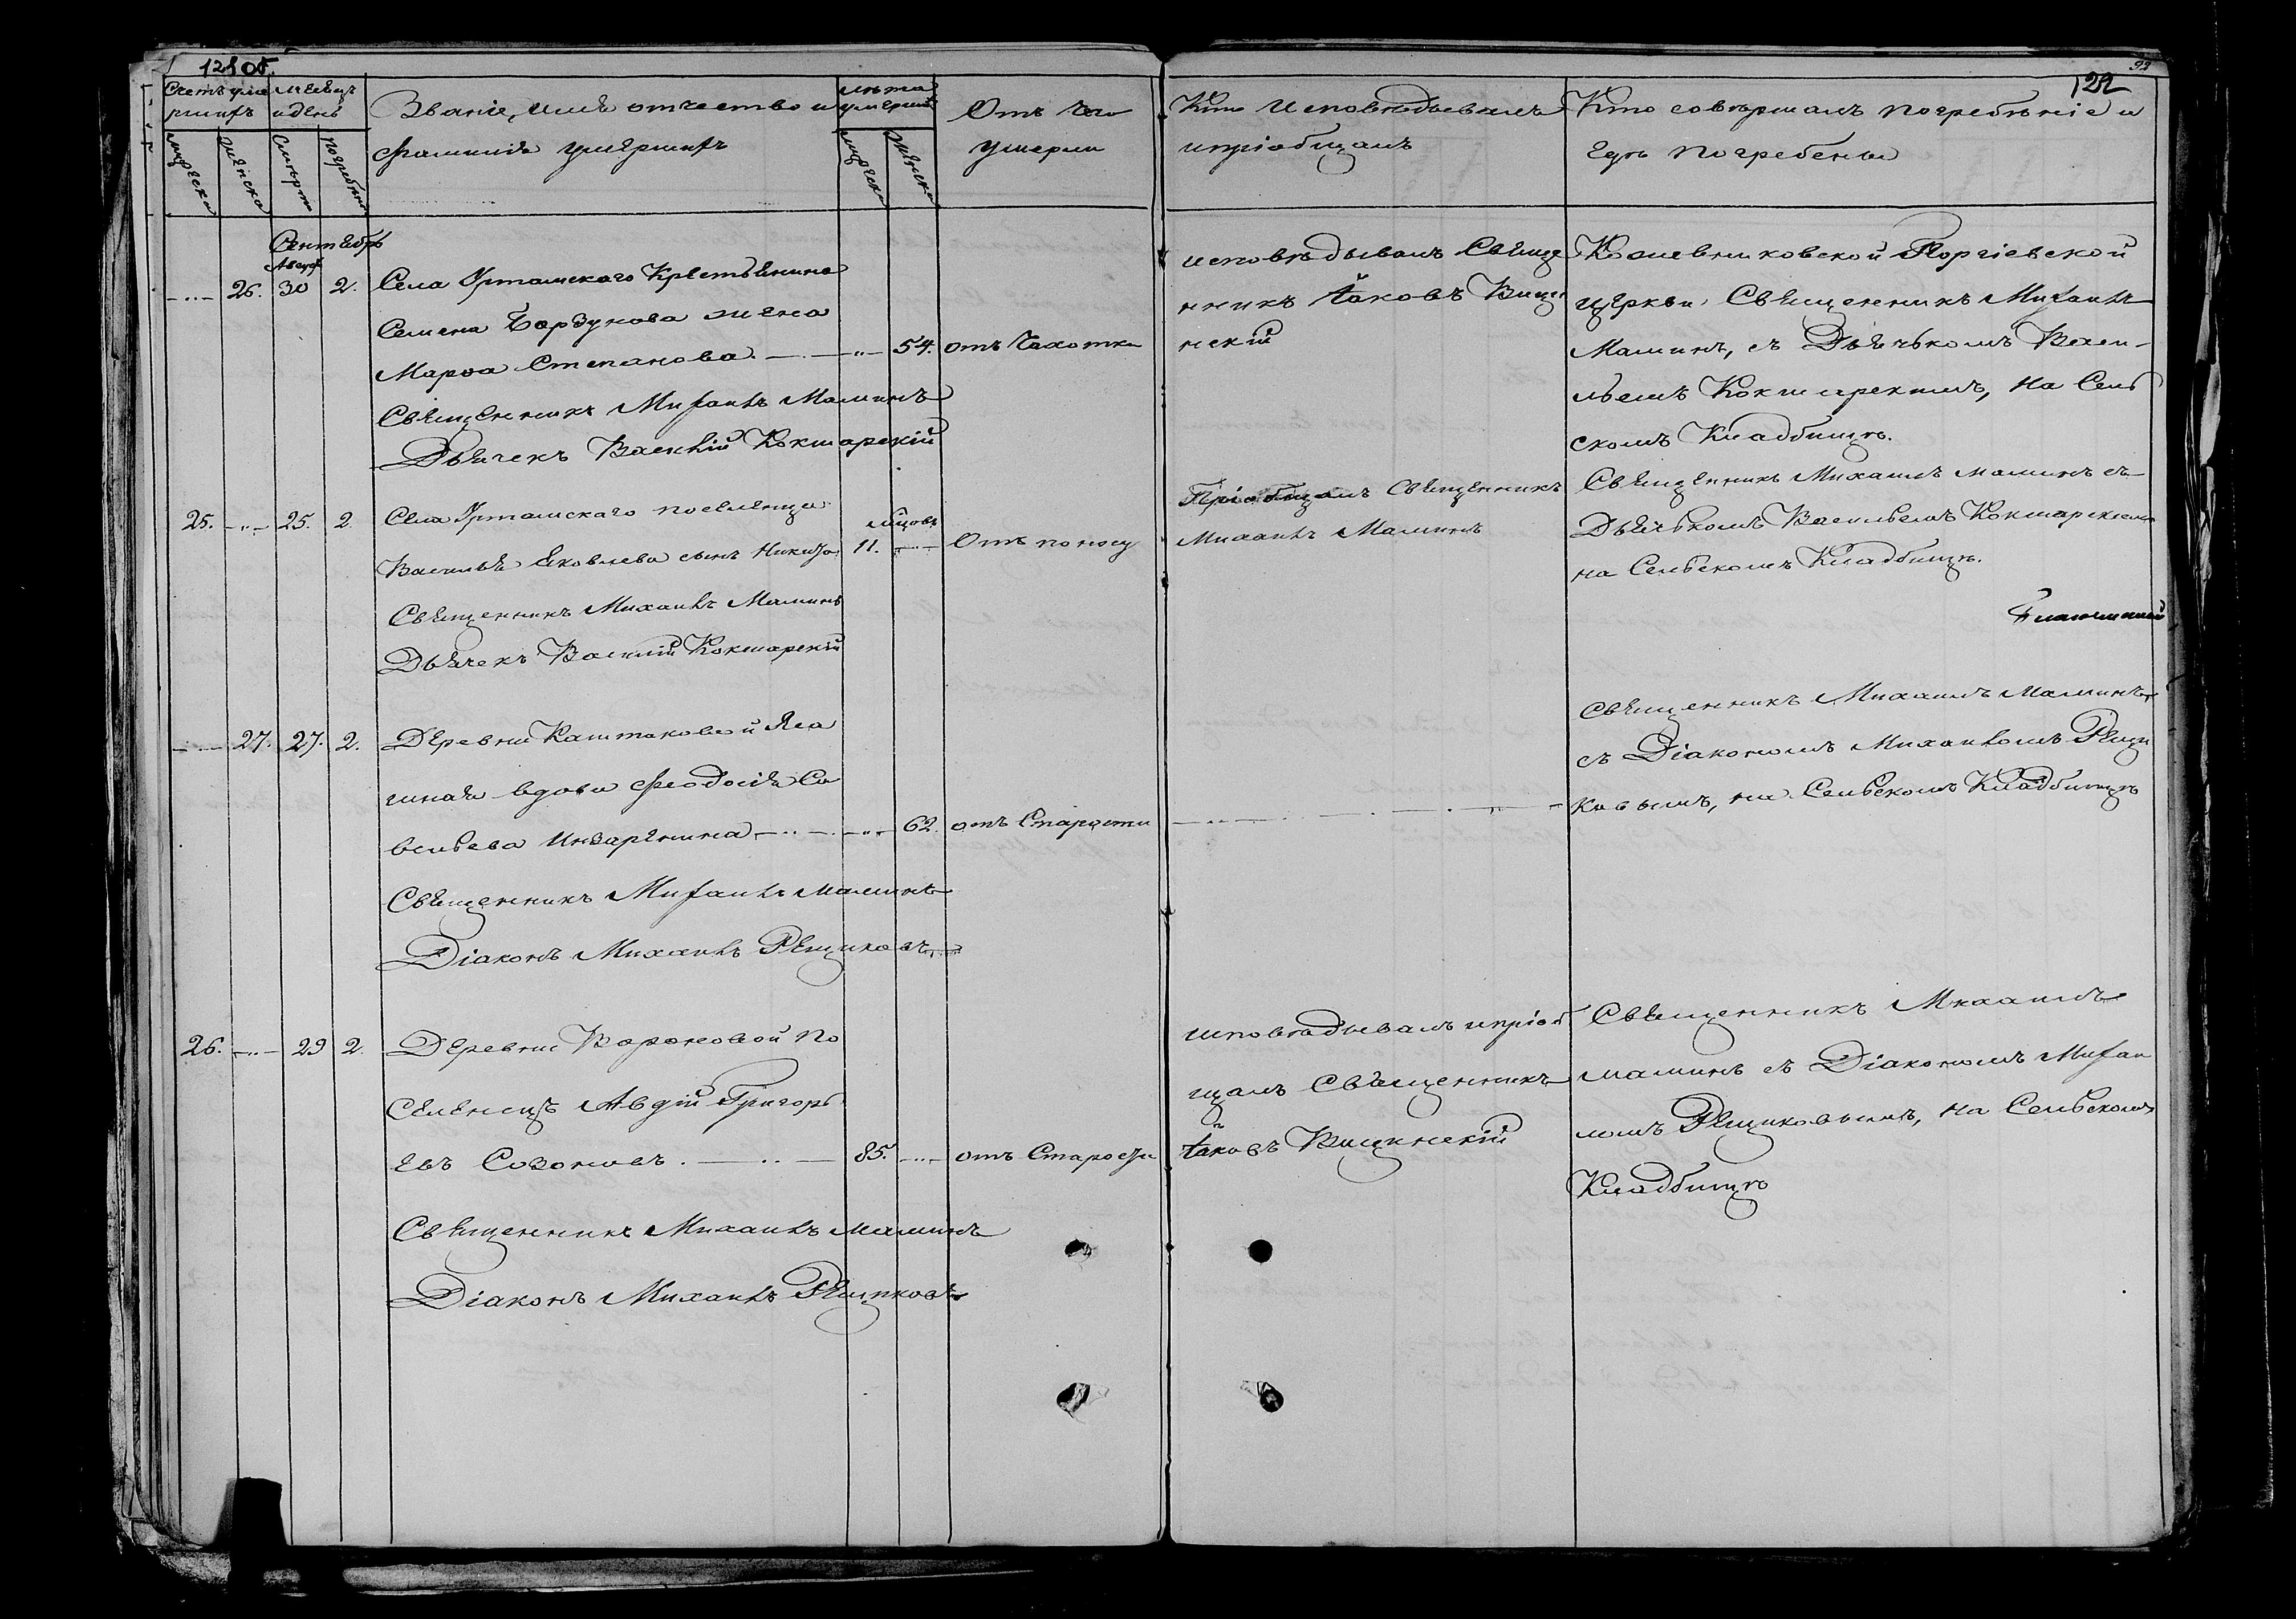 121 об.
92
122
Счетъ уме месецъ
ршихъ и день
мужеска
женска
смерти
погребенія
Званіе, имя отчество и
фамилія умершихъ
лета
умершихъ
мужеска
женска
Отъ чего
умерли
Кто исповѣдывалъ
и пріобщалъ
Кто совершалъ погребѣніе и
гдѣ погребены
Сентябрь
Август
26. 30 2. Села Уртамского Крестьянина
Семена Борзунова жена
Марѳа Степанова. 54. отъ Чахотки
Священникъ Михаилъ Маминъ
Дьячекъ Василій Кокшарскій
исповѣдывалъ Свяще
нникъ Іаковъ Вище
нскій
Кожевниковской Георгіевской
церкви Священникъ Михаилъ
Маминъ, съ Дьячькомъ Васи-
льемъ Кокшарскимъ, на Сель
скомъ Кладбищѣ.
25. 25. 2. Села Уртамскаго поселенца
Василья Яковлева сынъ Никита
мѣсцовъ
11. Отъ поносу
Священникъ Михаилъ Маминъ
Дьячекъ Василій Кокшарскій
Пріобщалъ Священникъ
Михаилъ Маминъ
Священникъ Михаилъ Маминъ съ
Дьячькомъ Васильемъ Кокшарскимъ
на Сельскомъ Кладбищѣ.
27. 27. 2. Деревни Каштаковой Яса
шная вдова Феодосія Са
вельева 62. отъ Старости
Священникъ Михаилъ Маминъ
Діаконъ Михаилъ Рещиковъ
Священникъ Михаилъ Маминъ
съ Діакономъ Михаиломъ Рещи
ковымъ, на Сельскомъ Кладбищѣ
26. 29 2. Деревни Вороновой По
селенецъ Авдій Григорь
евъ Созоновъ. 85. отъ Старости
Священникъ Михаилъ Маминъ
Діаконъ Михаилъ Рещиковъ
исповѣдывалъ и пріоб
щалъ Священникъ
Іаковъ Вищенскій
Священникъ Михаилъ
Маминъ съ Діакономъ Михаи
ломъ Рещиковымъ, на Сельскомъ
Кладбищѣ